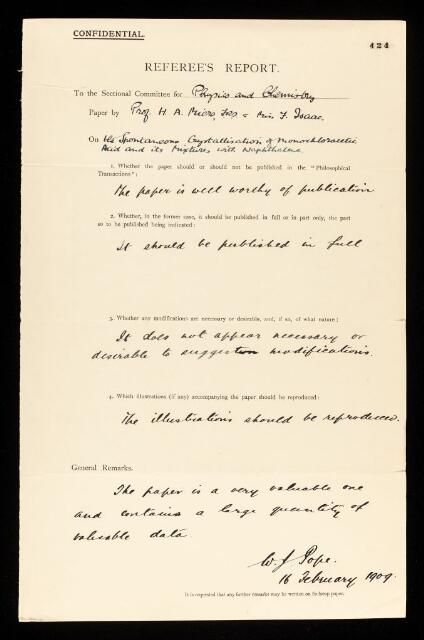 CONFIDENTIAL.
424
REFEREE'S REPORT.
To the Sectional Committee for Physics and Chemistry
Paper by Prof. H. A. Miers, FRS & Miss F. Isaac.
On the Spontaneous Crystallisation of Monochloracetic
Acid and its Mixtures with Naphthalene
1. Whether the paper should or should not be published in the "Philosophical
Transactions":
The paper is well worthy of publication
2. Whether, in the former case, it should be published in full or in part only, the part
so to be published being indicated:
It should be published in full
3. Whether any modifications are necessary or desirable, and, if so, of what nature:
It does not appear necessary or
desirable to suggest modifications.
4. Which illustrations (if any) accompanying the paper should be reproduced:
The illustrations should be reproduced.
General Remarks.
The paper is a very valuable one
and contains a large quantity of
valuable data.
W. J. Pope.
16 February 1909.
It is requested that any further remarks may be written on foolscap paper.